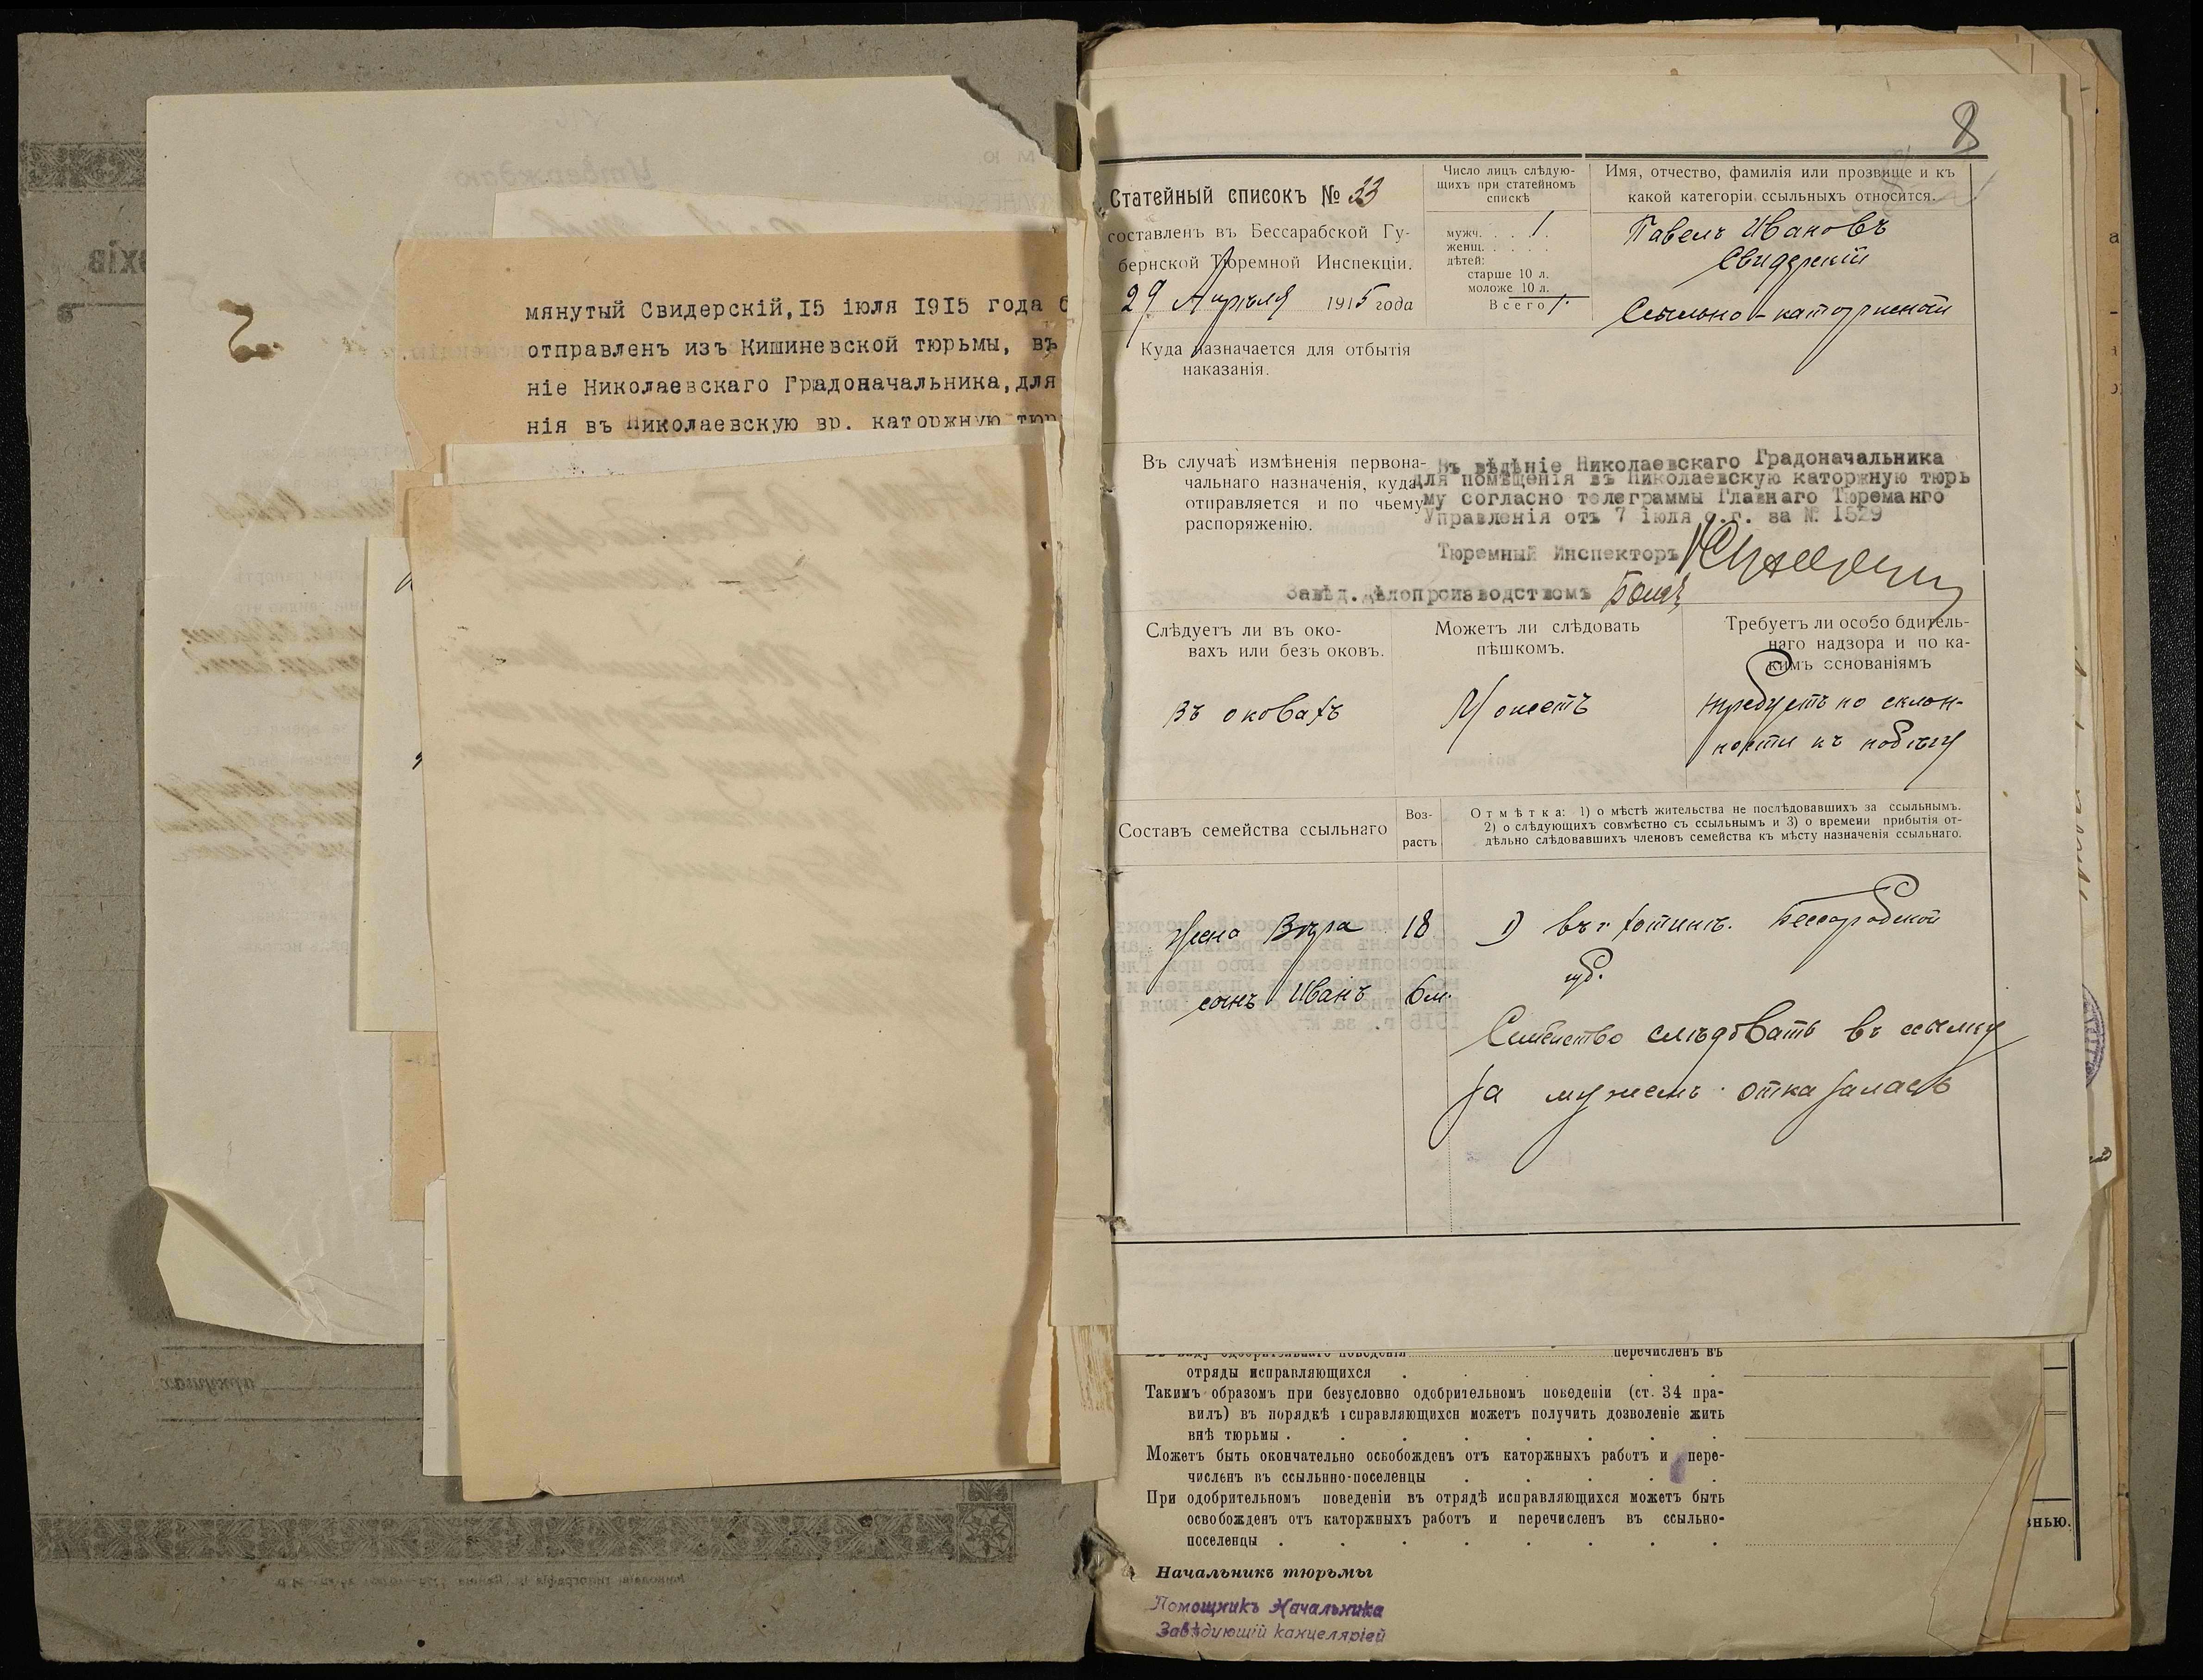 мянутый Свидерскій, 15 іюля 1915 года б
отправленъ изъ Кишиневской тюрьмы, въ
ніе Николаевскаго Градоначальника, для
нія въ Николаевскую вр. каторжную тюр
8
Статейный списокъ № 33
составленъ въ Бессарабской Гу-
бернской Тюремной Инспекціи.
29 Апрѣля 1915 года
Число лицъ слѣдую-
щихъ при статейномъ
спискѣ
мужч. . . 1.
женщ. . . . .
дѣтей:
старше 10 л.
моложе 10 л.
Всего 1.
Имя, отчество, фамилія или прозвище и къ
какой категоріи ссыльныхъ относится.
Павелъ Ивановъ
Свидерскій
Ссыльно-каторжный
Куда назначается для отбытія
наказанія.
Въ случаѣ измѣненія первона-
чальнаго назначенія, куда
отправляется и по чьему
распоряженію.
Въ вѣдѣніе Николаевскаго Градоначальника
для помѣщенія въ Николаевскую каторжную тюрь
му согласно телеграммы Главнаго Тюреманго
Управленія отъ 7 іюля с.г. за № 1529
Тюремный Инспекторъ
Завѣд. дѣлопроизводствомъ
Слѣдуетъ ли въ око-
вахъ или безъ оковъ.
Въ оковахъ
Можетъ ли слѣдовать
пѣшкомъ.
Можетъ
Требуетъ ли особо бдитель-
наго надзора и по ка-
кимъ основаніямъ
требуетъ по склон-
ности къ побѣгу
Составъ семейства ссыльнаго
Воз-
растъ
Отмѣтка: 1) о мѣстѣ жительства не послѣдовавшихъ за ссыльнымъ.
2) о слѣдующихъ совмѣстно съ ссыльнымъ и 3) о времени прибытія от-
дѣльно слѣдовавшихъ членовъ семейства къ мѣсту назначенія ссыльнаго.
Жена Вѣра 18 1) въ г. Хотинѣ. Бессарабской
губ.
сынъ Иванъ 6 м.
Семейство слѣдовать въ ссылку
за мужемъ отказалась
Въ виду одобрительнаго поведенія перечисленъ въ
отряды исправляющихся
Такимъ образомъ при безусловно одобрительномъ поведеніи (ст. 34 пра-
вилъ) въ порядкѣ исправляющихся можетъ получить дозволеніе жить
внѣ тюрьмы
Можетъ быть окончательно освобожденъ отъ каторжныхъ работъ и пере-
численъ въ ссыльно-поселенцы
При одобрительномъ поведеніи въ отрядѣ исправляющихся можетъ быть
освобожденъ отъ каторжныхъ работъ и перечисленъ въ ссыльно-
поселенцы
знью.
Начальникъ тюрьмы
Помощникъ Начальника
Завѣдующій канцеляріей